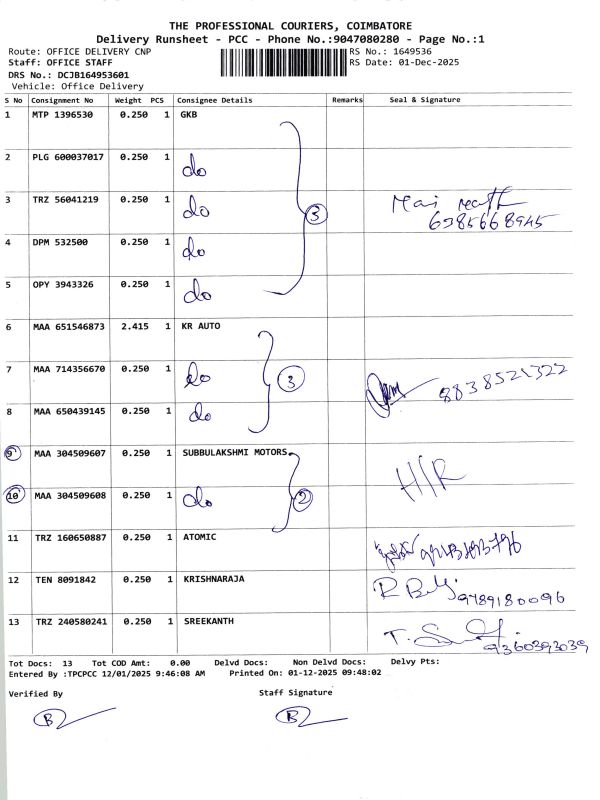 THE PROFESSIONAL COURIERS, COIMBATORE
Delivery Runsheet - PCC - Phone No.:9047080280 - Page No.:1
Route: OFFICE DELIVERY CNP RS No.: 1649536
Staff: OFFICE STAFF RS Date: 01-Dec-2025
DRS No.: DCJB164953601
Vehicle: Office Delivery
S No Consignment No Weight PCS Consignee Details Remarks Seal & Signature
1 MTP 1396530 0.250 1 GKB
2 PLG 600037017 0.250 1 do
3 TRZ 56041219 0.250 1 do 3
6385668945
4 DPM 532500 0.250 1 do
5 OPY 3943326 0.250 1 do
6 MAA 651546873 2.415 1 KR AUTO
7 MAA 714356670 0.250 1 do 3 8838521322
8 MAA 650439145 0.250 1 do
9 MAA 304509607 0.250 1 SUBBULAKSHMI MOTORS
H/R
10 MAA 304509608 0.250 1 do 2
11 TRZ 160650887 0.250 1 ATOMIC
12 TEN 8091842 0.250 1 KRISHNARAJA
9789180096
13 TRZ 240580241 0.250 1 SREEKANTH
9360393039
Tot Docs: 13 Tot COD Amt: 0.00 Delvd Docs: Non Delvd Docs: Delvy Pts:
Entered By :TPCPCC 12/01/2025 9:46:08 AM Printed On: 01-12-2025 09:48:02
Verified By Staff Signature
B B